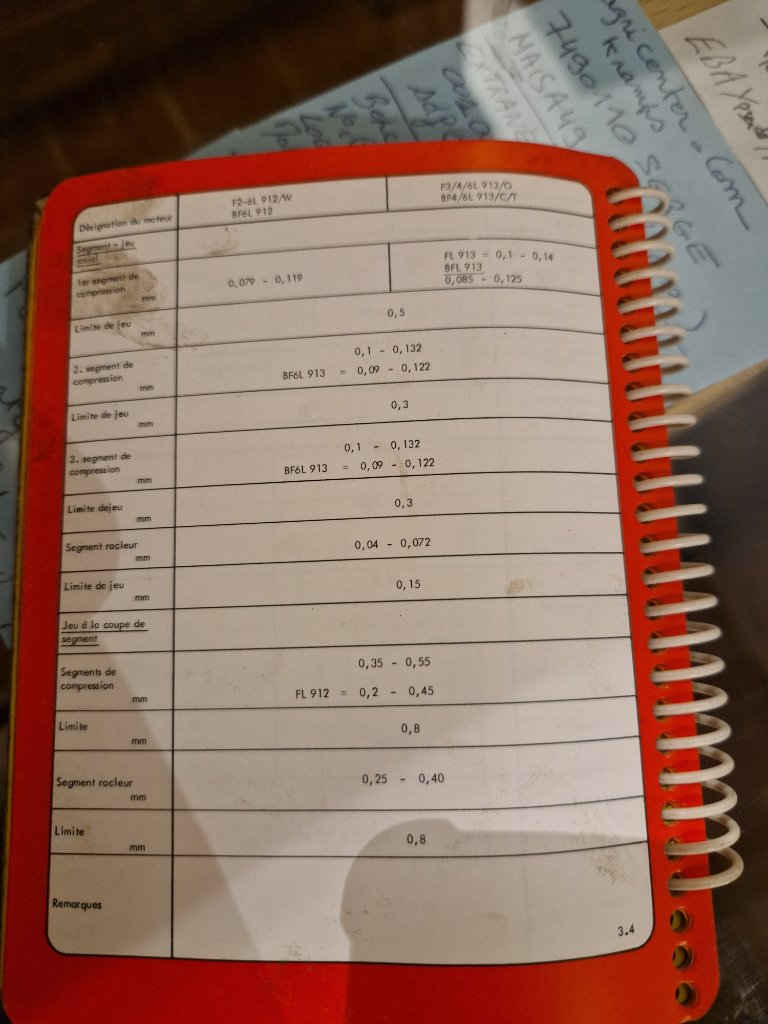 gricenter.com
7490110 SERGE
EBAY
MAISAUG
EXTRANE
F2-6L 912/W
BF6L 912
F3/4/6L 913/G
BF4/6L 913/C/T
Désignation du moteur
Segment - jeu
axial
1er segment de
compression
mm
0,079 - 0,119
FL 913 = 0,1 - 0,14
BFL 913
0,085 - 0,125
Limite de jeu
mm
0,5
2. segment de
compression
mm
0,1 - 0,132
BF6L 913 = 0,09 - 0,122
Limite de jeu
mm
0,3
3. segment de
compression
mm
0,1 - 0,132
BF6L 913 = 0,09 - 0,122
Limite dejeu
mm
0,3
Segment racleur
mm
0,04 - 0,072
Limite de jeu
mm
0,15
Jeu à la coupe de
segment
Segments de
compression
mm
0,35 - 0,55
FL 912 = 0,2 - 0,45
Limite
mm
0,8
Segment racleur
mm
0,25 - 0,40
Limite
mm
0,8
Remarques
3.4